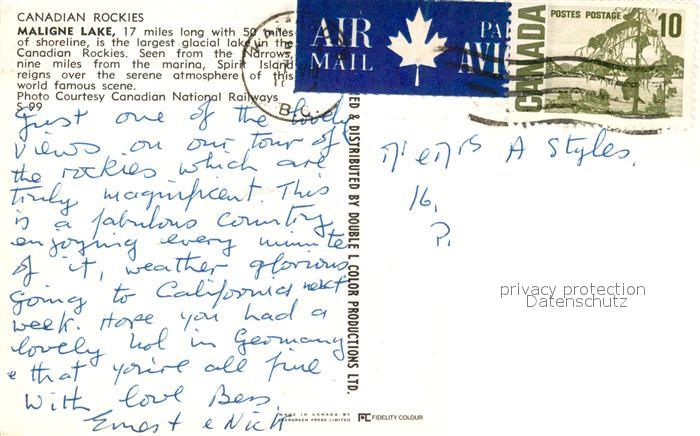 CANADIAN ROCKIES
MALIGNE LAKE, 17 miles long with 50 miles
of shoreline, is the largest glacial lake in the
Canadian Rockies. Seen from the Narrows,
nine miles from the marina, Spirit Island
reigns over the serene atmosphere of this
world famous scene.
Photo Courtesy Canadian National Railways
S-99
Just one of the lovely
views on our tour of
the rockies which are
truly magnificent. This
is a fabulous country
enjoying every minute
of it, weather glorious
going to California next
week. Hope you had a
lovely hol in Germany
e that you're all fine
With love Bess,
Ernest e Nick
AIR MAIL
PAR AVI
B.C.
CANADA
POSTES POSTAGE
10
ED & DISTRIBUTED BY DOUBLE L COLOR PRODUCTIONS LTD.
A Styles,
16,
P.
privacy protection
Datenschutz
MADE IN CANADA BY
EVERGREEN PRESS LIMITED
FIDELITY COLOUR